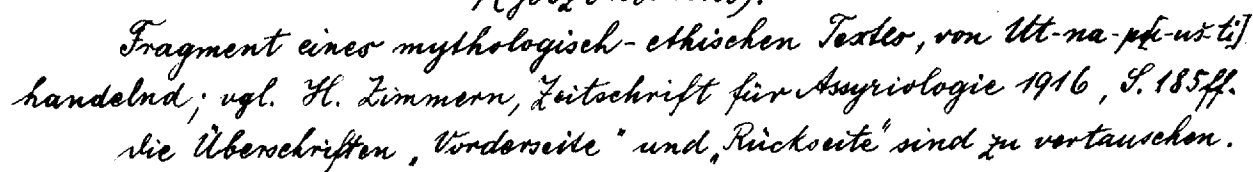 Fragment eines mythologisch-ethischen Textes, von Ut-na-pu-uš-ti]
handelnd; vgl. H. Zimmern, Zeitschrift für Assyriologie 1916, S. 185ff.
die Überschriften „Vorderseite" und „Rückseite" sind zu vertauschen.